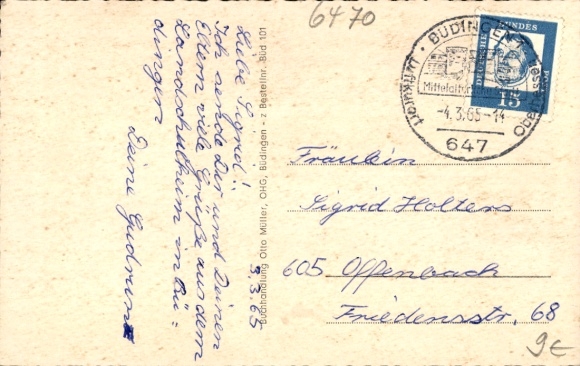 6470
Liebe Sigrid!
Ich sende Dir und Deinen
Eltern viele Grüße aus dem
Landschulheim in Bü=
dingen
Deine Gudrun
3.3.65
Buchhandlung Otto Müller, OHG, Büdingen - z Bestellnr. Büd 101
DEUTSCHE BUNDESPOST
15
BÜDINGEN
Luftkurort
Oberhessen
Mittelalterliche
-4.3.65-14
647
Fräulein
Sigrid Holters
605 Offenbach
Friedensstr, 68
9€